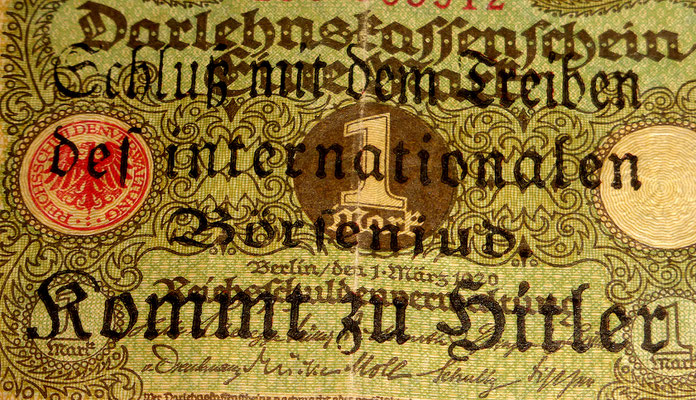 Darlehnskassenschein
Schluß mit dem Treiben
des internationalen
REICHSSCHULDENVERWALTUNG
1
Mark
Börsenjud.
Berlin, den 1. März 1920
Reichsschuldenverwaltung
Kommt zu Hitler
1
Mark
1
Mark